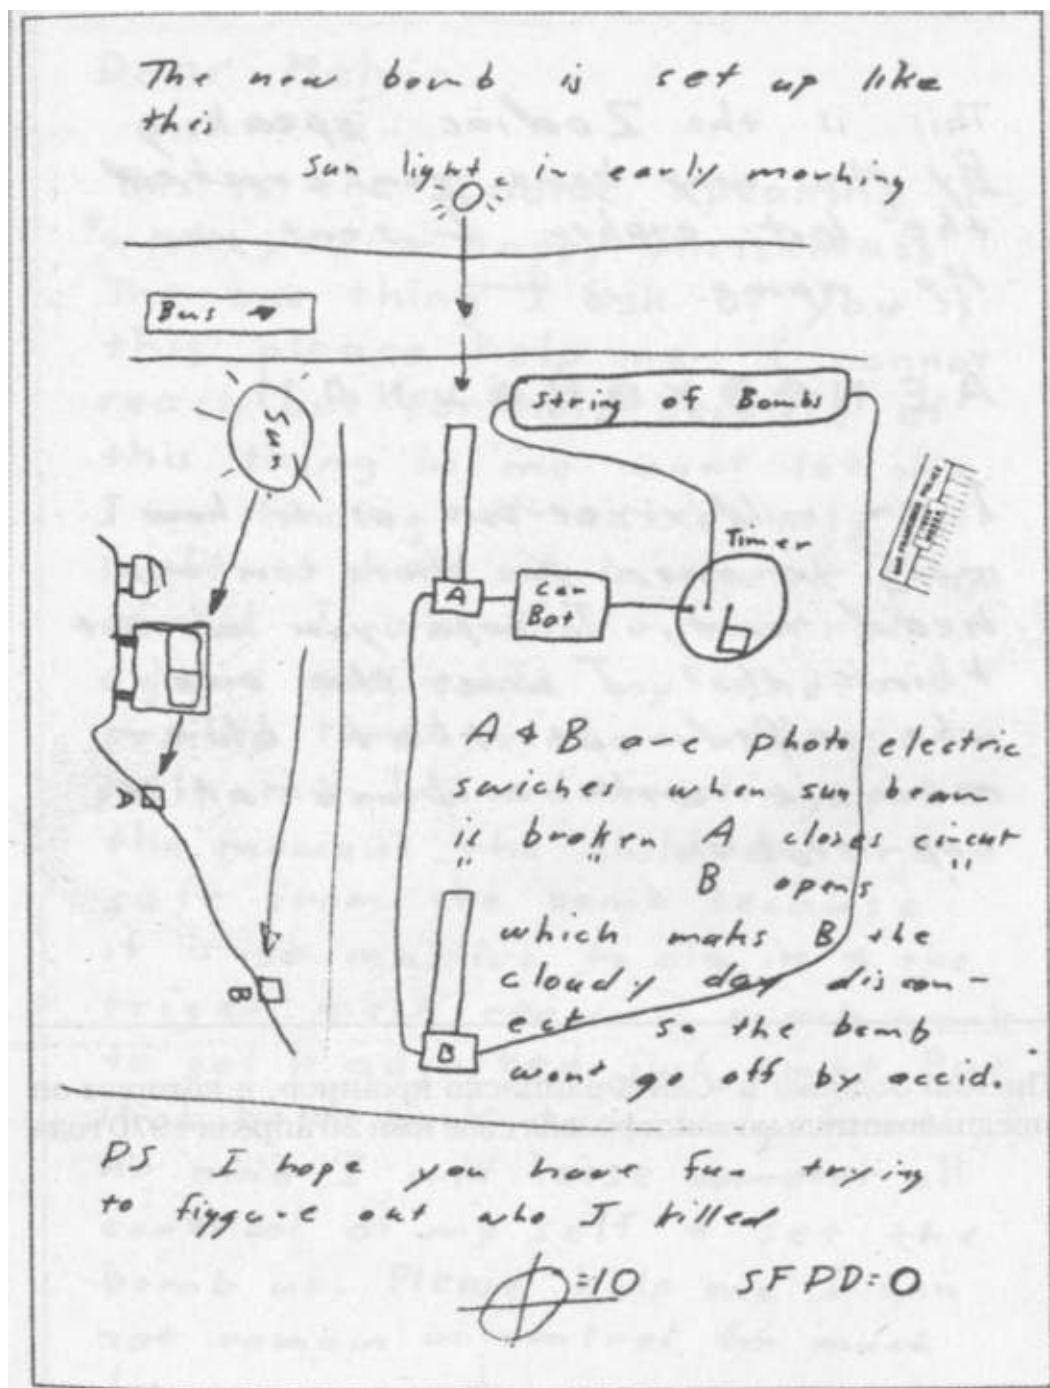 The new bomb is set up like
this
sun light in early morning
Bus
Sun
String of Bombs
Timer
A
Car
Bat
A & B are photo electric
swiches when sun beam
is broken A closes circut
" " B opens "
which maks B the
cloudy day discon-
ect so the bomb
wont go off by accid.
B
B
PS I hope you have fun trying
to figgure out who I killed
=10 SFPD=0